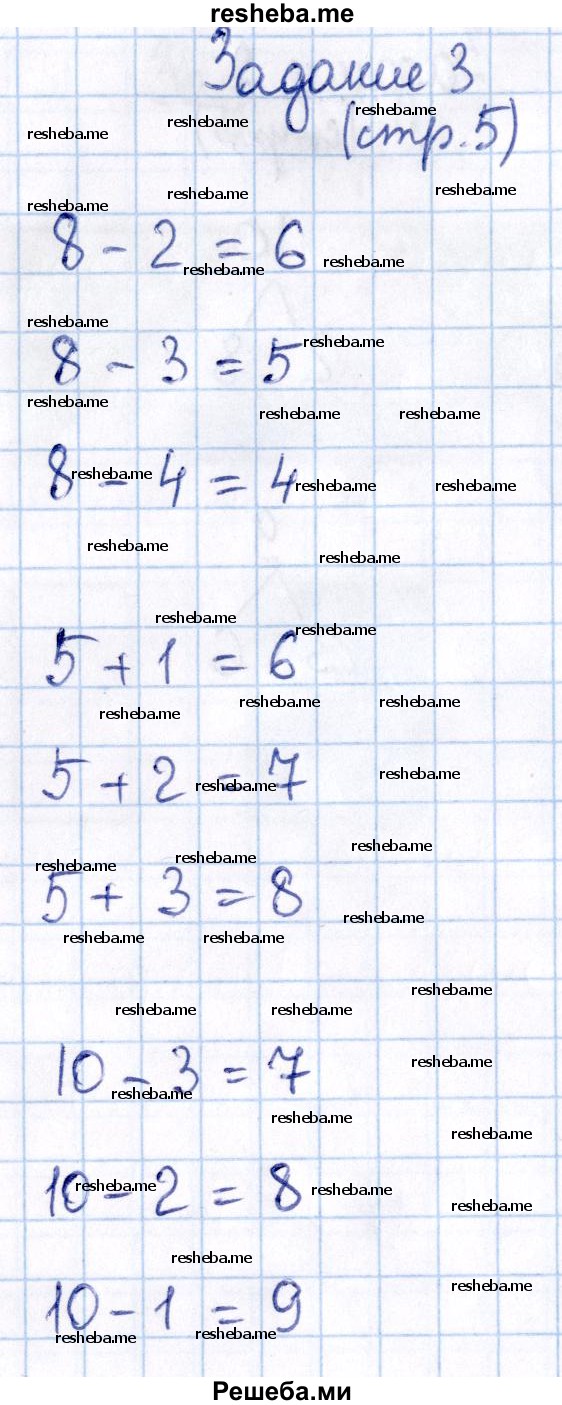 resheba.me
Задание 3
(стр. 5)
8 - 2 = 6
8 - 3 = 5
8 - 4 = 4
5 + 1 = 6
5 + 2 = 7
5 + 3 = 8
10 - 3 = 7
10 - 2 = 8
10 - 1 = 9
Решеба.ми